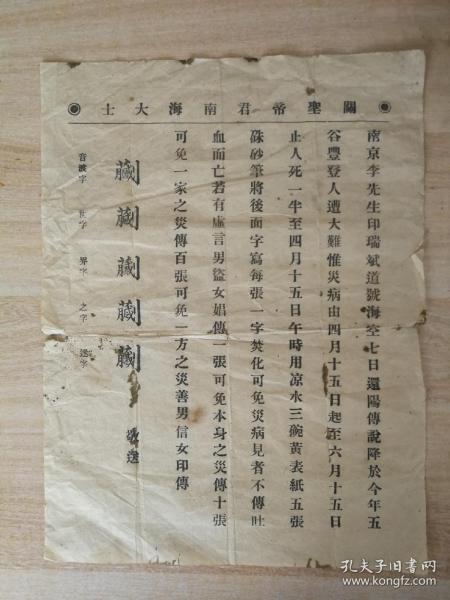 關聖帝君南海大士
南京李先生印瑞斌道號海空七日還陽傳說降於今年五
谷豐登人遭大難惟災病由四月十五日起至六月十五日
止人死一半至四月十五日午時用凉水三碗黃表紙五張
硃砂筆將後面字寫每張一字焚化可免災病見者不傳吐
血而亡若有虛言男盜女娼傳一張可免本身之災傳十張
可免一家之災傳百張可免一方之災善男信女印傳
送
孔夫子旧书网
www.kongfz.com